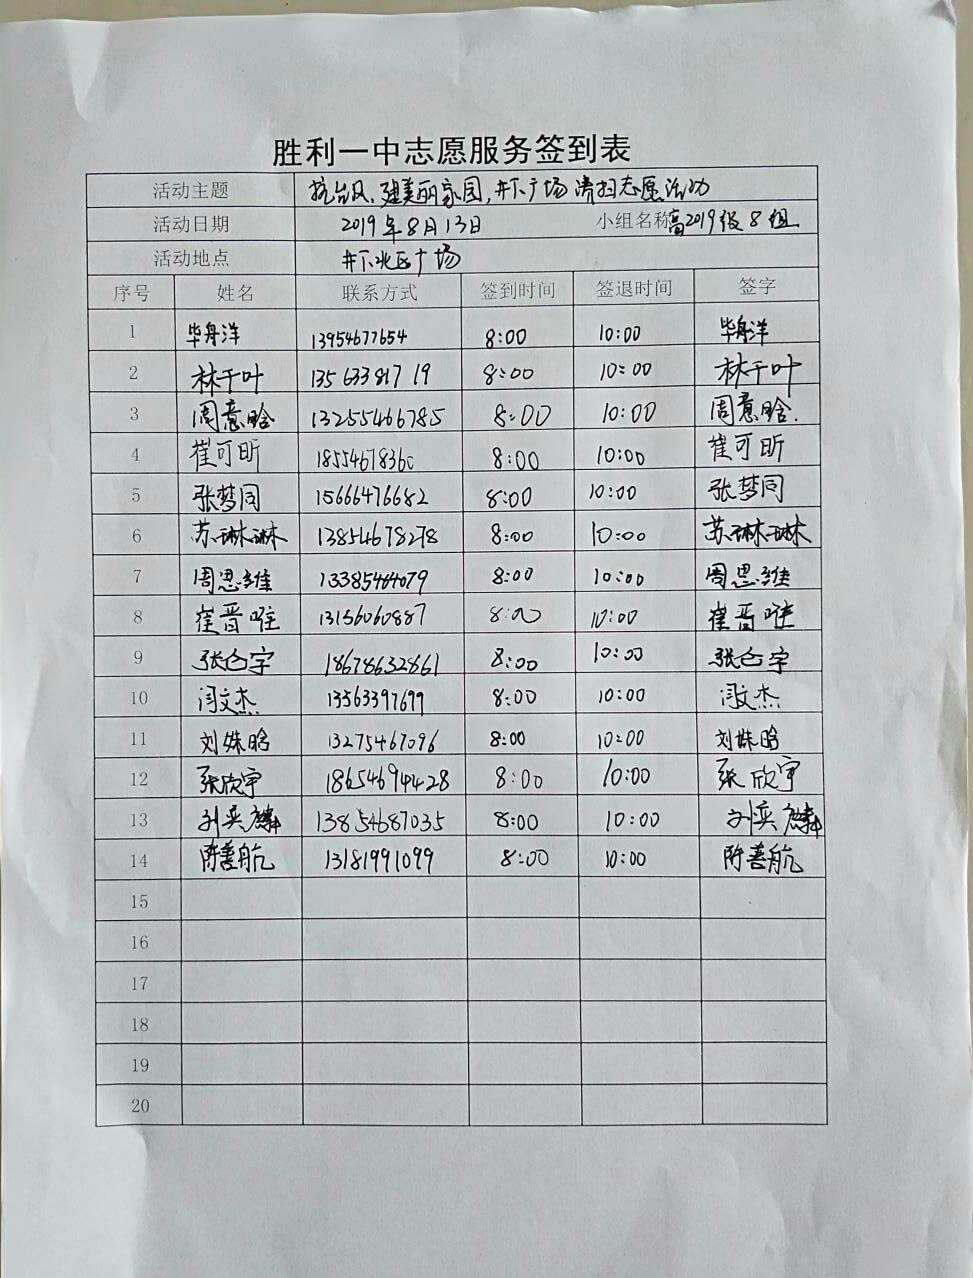 胜利一中志愿服务签到表
活动主题 抗台风,建美丽家园,井下广场清扫志愿活动
活动日期 2019年8月13日 小组名称 高2019级8组
活动地点 井下北区广场
序号 姓名 联系方式 签到时间 签退时间 签字
1 毕舟洋 13954677654 8:00 10:00 毕舟洋
2 林千叶 13563381719 8:00 10:00 林千叶
3 周意晗 13255466785 8:00 10:00 周意晗.
4 崔可昕 18554678360 8:00 10:00 崔可昕
5 张梦同 15666476682 8:00 10:00 张梦同
6 苏琳琳 13854678278 8:00 10:00 苏琳琳
7 周思维 13385464079 8:00 10:00 周思维
8 崔晋唯 13156060887 8:00 10:00 崔晋唯
9 张宇 18678632861 8:00 10:00 张宇
10 闫文杰 13563397699 8:00 10:00 闫文杰
11 刘姝晗 13275467096 8:00 10:00 刘姝晗
12 张欣宇 18654694428 8:00 10:00 张欣宇
13 刘奕麟 13854687035 8:00 10:00 刘奕麟
14 陈善航 13181991099 8:00 10:00 陈善航
15
16
17
18
19
20